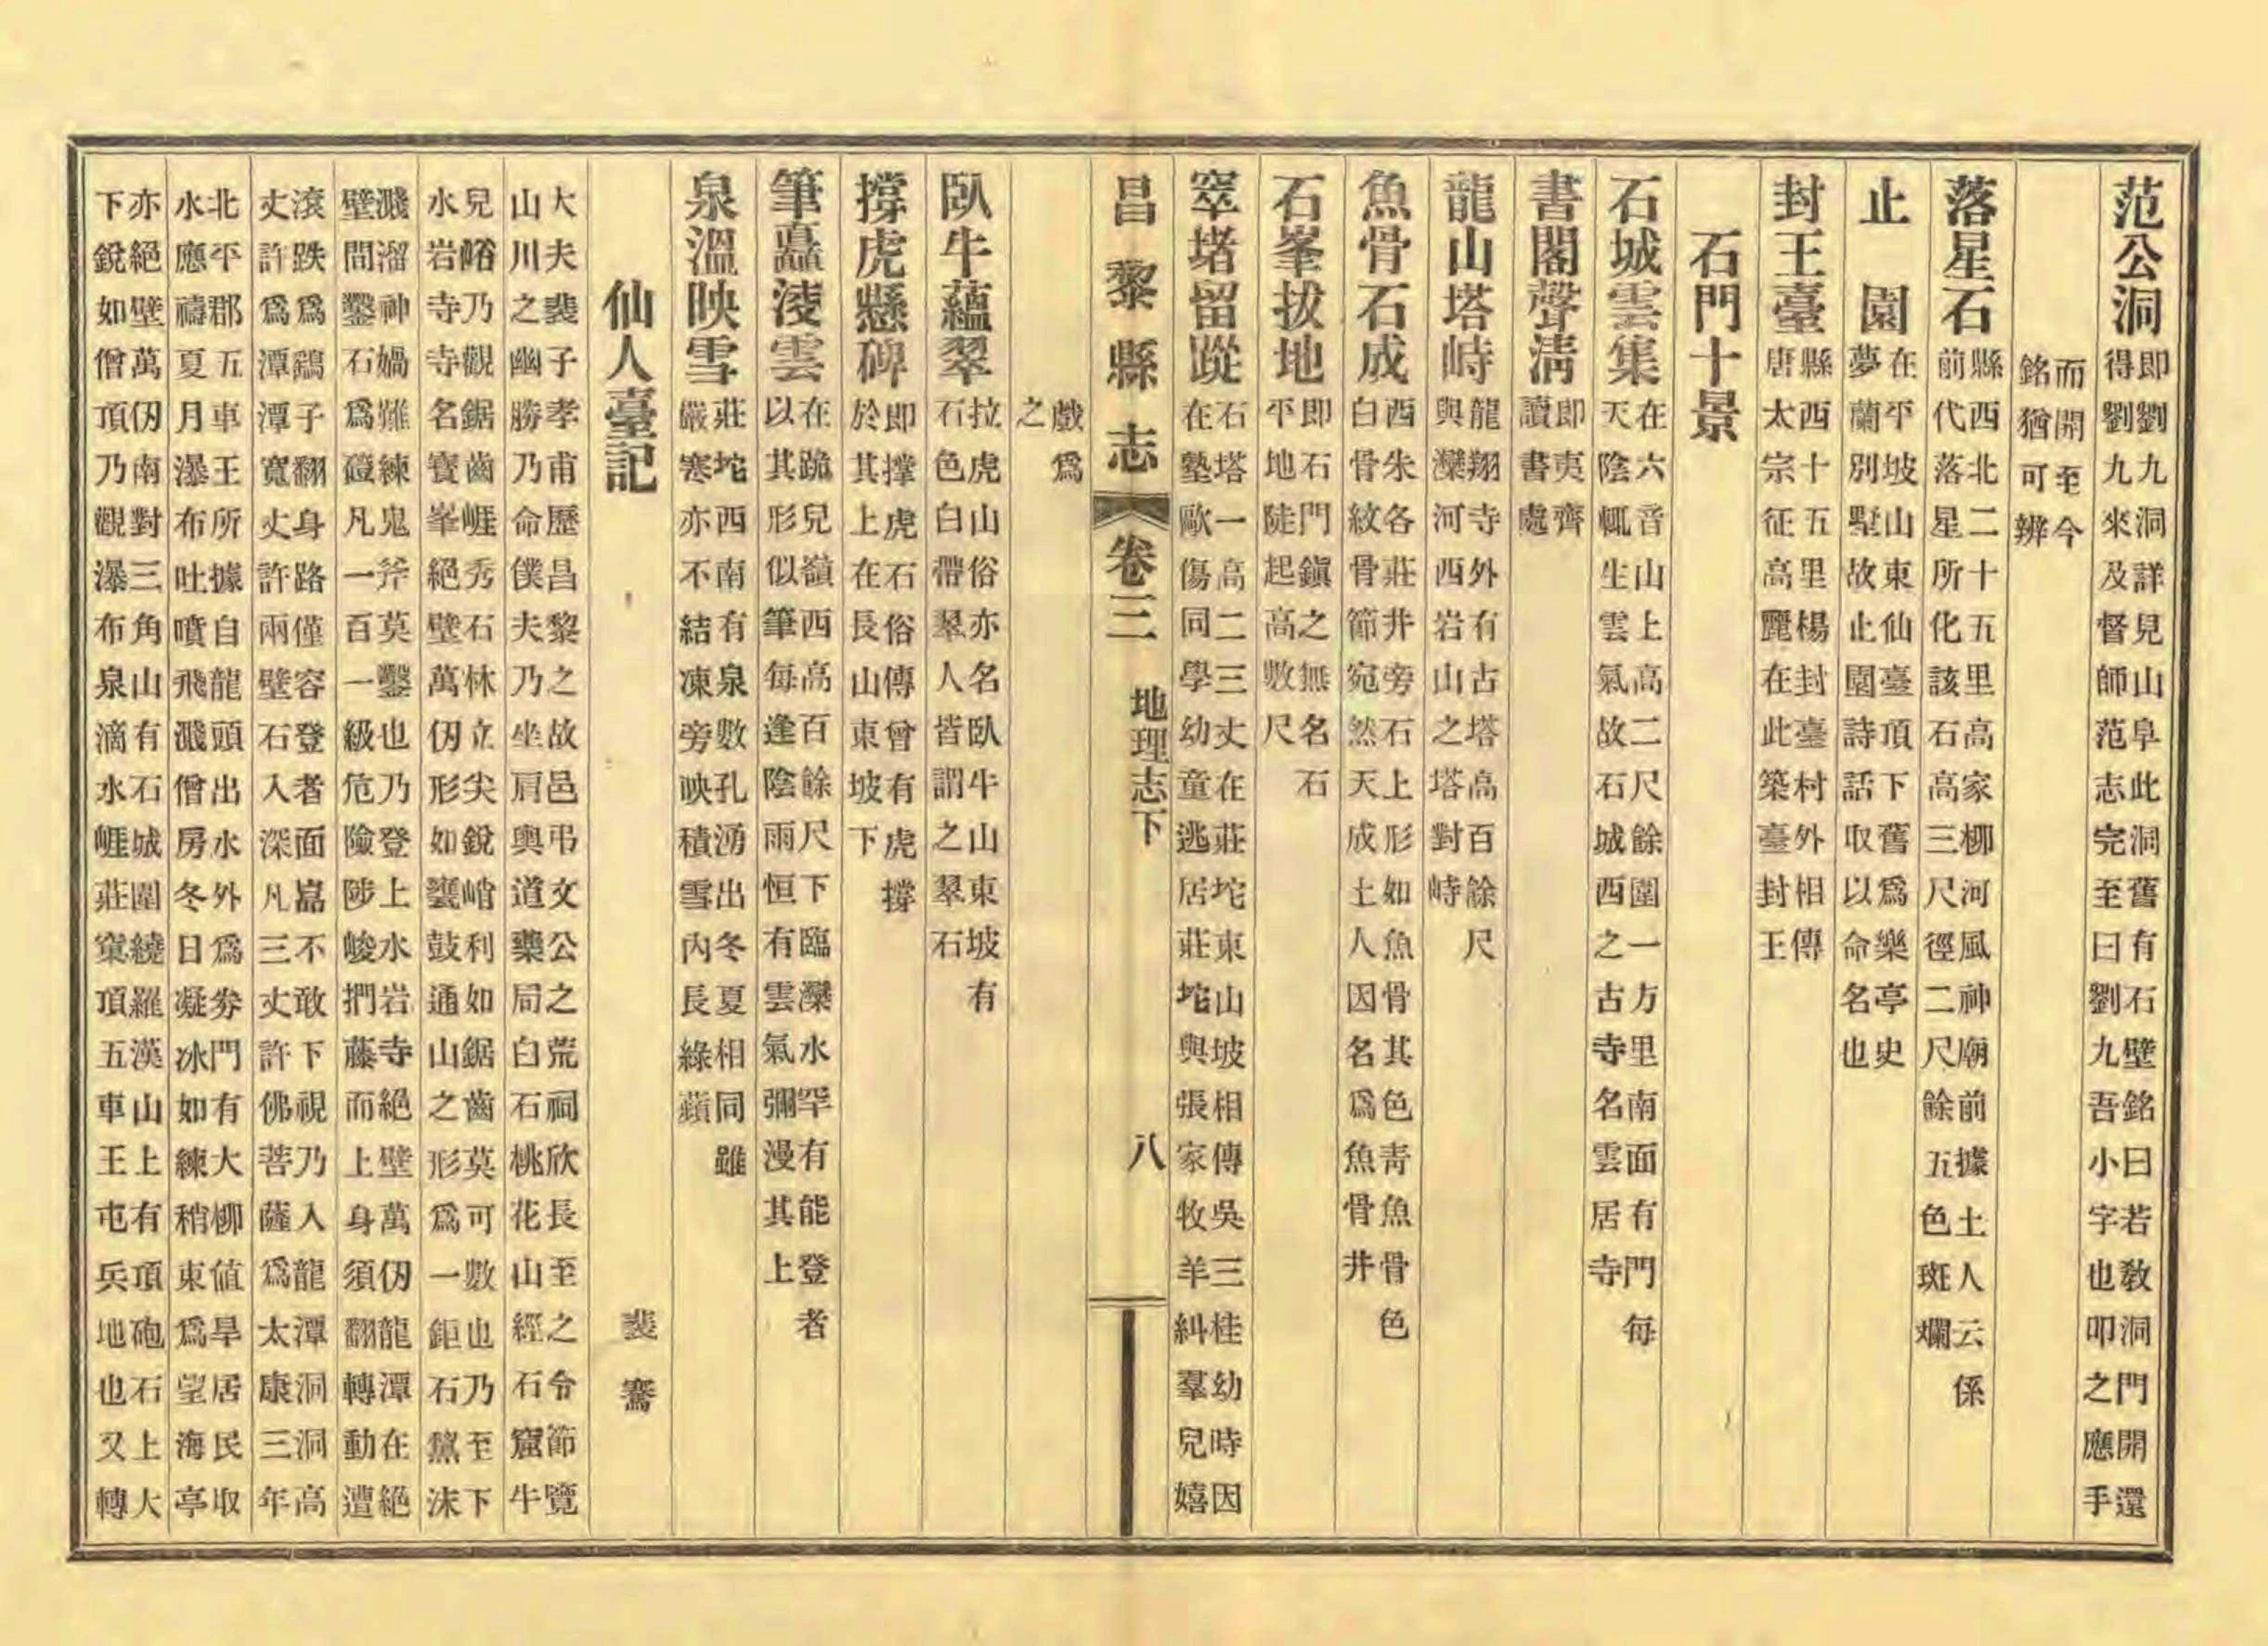 范公洞
即劉九洞詳見山阜此洞舊有石壁銘曰若敎洞門開還
得劉九來及督師范志完至曰劉九吾小字也叩之應手
而開至今
銘猶可辨
落星石
縣西北二十五里高家柳河風神廟前據土人云係
前代落星所化該石高三尺徑二尺餘五色斑斕
止園
在平坡山東仙臺頂下舊爲樂亭史
夢蘭別墅故止園詩話取以命名也
封王臺
縣西十五里楊封臺村外相傳
唐太宗征高麗在此築臺封王
石門十景
石城雲集
在六音山上高二尺餘圍一方里南面有門每
天陰輒生雲氣故石城西之古寺名雲居寺
書閣聲淸
即夷齊
讀書處
龍山塔峙
龍翔寺外有古塔高百餘尺
與灤河西岩山之塔對峙
魚骨石成
西朱各莊井旁石上形如魚骨其色靑魚骨色
白骨紋骨節宛然天成土人因名爲魚骨井
石峯拔地
即石門鎭之無名石
平地陡起高數尺
窣堵留蹤
石塔一高二三丈在莊坨東山坡相傳吳三桂幼時因
在塾歐傷同學幼童逃居莊坨與張家牧羊糾羣兒嬉
昌黎縣志 卷三 地理志下 八
戲爲
之
臥牛蘊翠
拉虎山俗亦名臥牛山東坡有
石色白帶翠人皆謂之翠石
撐虎懸碑
即撐虎石俗傳曾有虎撐
於其上在長山東坡下
筆矗淩雲
在跪兒嶺西高百餘尺下臨灤水罕有能登者
以其形似筆每逢陰雨恒有雲氣彌漫其上
泉溫映雪
莊坨西南有泉數孔湧出冬夏相同雖
嚴寒亦不結凍旁映積雪內長綠蘋
仙人臺記 裴騫
大夫裴子孝甫歷昌黎之故邑弔文公之荒祠欣長至之令節覽
山川之幽勝乃命僕夫乃坐肩輿道藥局白石桃花山經石窟牛
兒峪乃觀鋸齒崕秀石林立尖銳峭利如鋸齒莫可數也乃至下
水岩寺寺名寶峯絕壁萬仞形如甕鼓通山之形爲一鉅石黛沫
濺溜神媧難練鬼斧莫鑿也乃登上水岩寺絕壁萬仞龍潭在絕
壁間鑿石爲磴凡一百一級危險陟峻捫藤而上身須翻轉動遭
滾跌爲鷂子翻身路僅容登者面嵓不敢下視乃入龍潭洞洞高
丈許爲潭潭寬丈許兩壁石入深凡三丈許佛菩薩爲太康三年
北平郡五車王所據自龍頭出水水外爲劵門有大柳值旱居民取
水應禱夏月瀑布吐噴飛濺僧房冬日凝冰如練稍東爲望海亭
亦絕壁萬仞南對三角山有石城圍繞羅漢山上有頂砲石上大
下銳如僧頂乃觀瀑布泉滴水崕莊窠頂五車王屯兵地也又轉